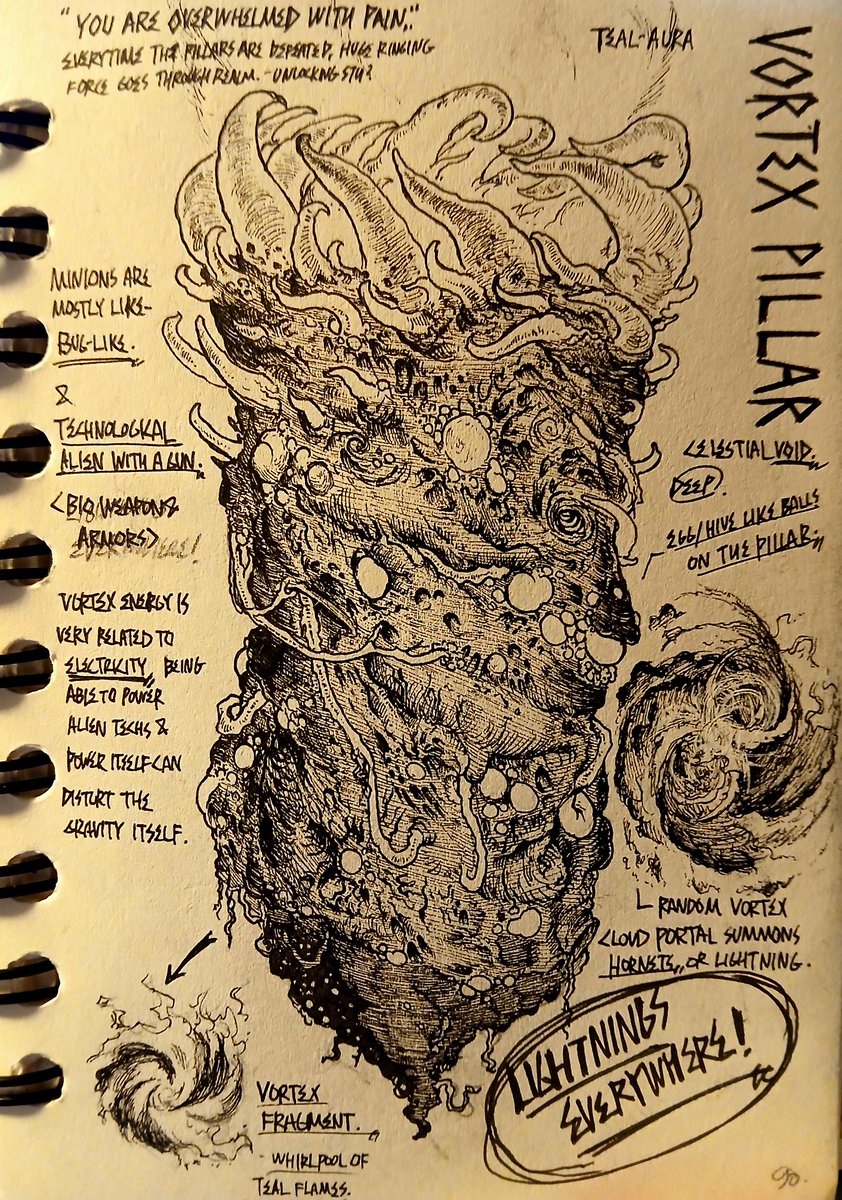 "YOU ARE OVERWHELMED WITH PAIN,."
EVERYTIME THE PILLARS ARE DEFEATED, HUGE RINGING
FORCE GOES THROUGH REALM. -UNLOCKING STH?
TEAL-AURA
VORTEX PILLAR
MINIONS ARE
MOSTLY LIKE-
BUG-LIKE.
&
TECHNOLOGICAL
ALIEN WITH A GUN.
<BIG WEAPONS
ARMORS>
EVERYWHERE!
VORTEX ENERGY IS
VERY RELATED TO
ELECTRICITY, BEING
ABLE TO POWER
ALIEN TECHS &
POWER ITSELF CAN
DISTURT THE
GRAVITY ITSELF.
CELESTIAL VOID.
DEEP.
EGG/HIVE LIKE BALLS
ON THE PILLAR.
RANDOM VORTEX
CLOUD PORTAL SUMMONS
HORNETS,, OR LIGHTNING.
LIGHTNINGS
EVERYWHERE!
VORTEX
FRAGMENT.
- WHIRLPOOL OF
TEAL FLAMES.